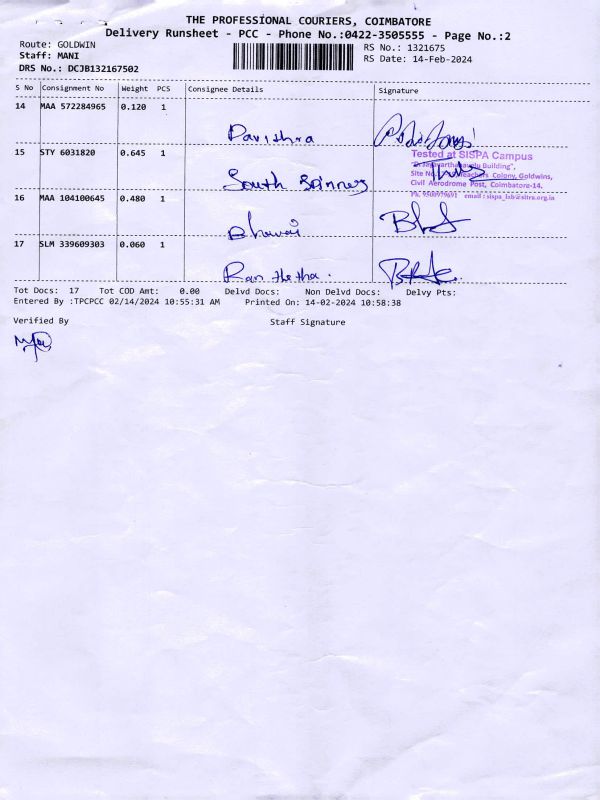 THE PROFESSIONAL COURIERS, COIMBATORE
Delivery Runsheet - PCC - Phone No.:0422-3505555 - Page No.:2
Route: GOLDWIN
RS No.: 1321675
Staff: MANI
RS Date: 14-Feb-2024
DRS No.: DCJB132167502
S No Consignment No Weight PCS Consignee Details Signature
14 MAA 572284965 0.120 1
Pavithra
15 STY 6031820 0.645 1
Tested at SISPA Campus
Building",
Site No. Teachers Colony, Goldwins,
South
Civil Aerodrome Post, Coimbatore-14.
16 MAA 104100645 0.480 1
email : sispa_lab@sitra.org.in
17 SLM 339609303 0.060 1
Tot Docs: 17 Tot COD Amt: 0.00 Delvd Docs: Non Delvd Docs: Delvy Pts:
Entered By :TPCPCC 02/14/2024 10:55:31 AM Printed On: 14-02-2024 10:58:38
Verified By Staff Signature